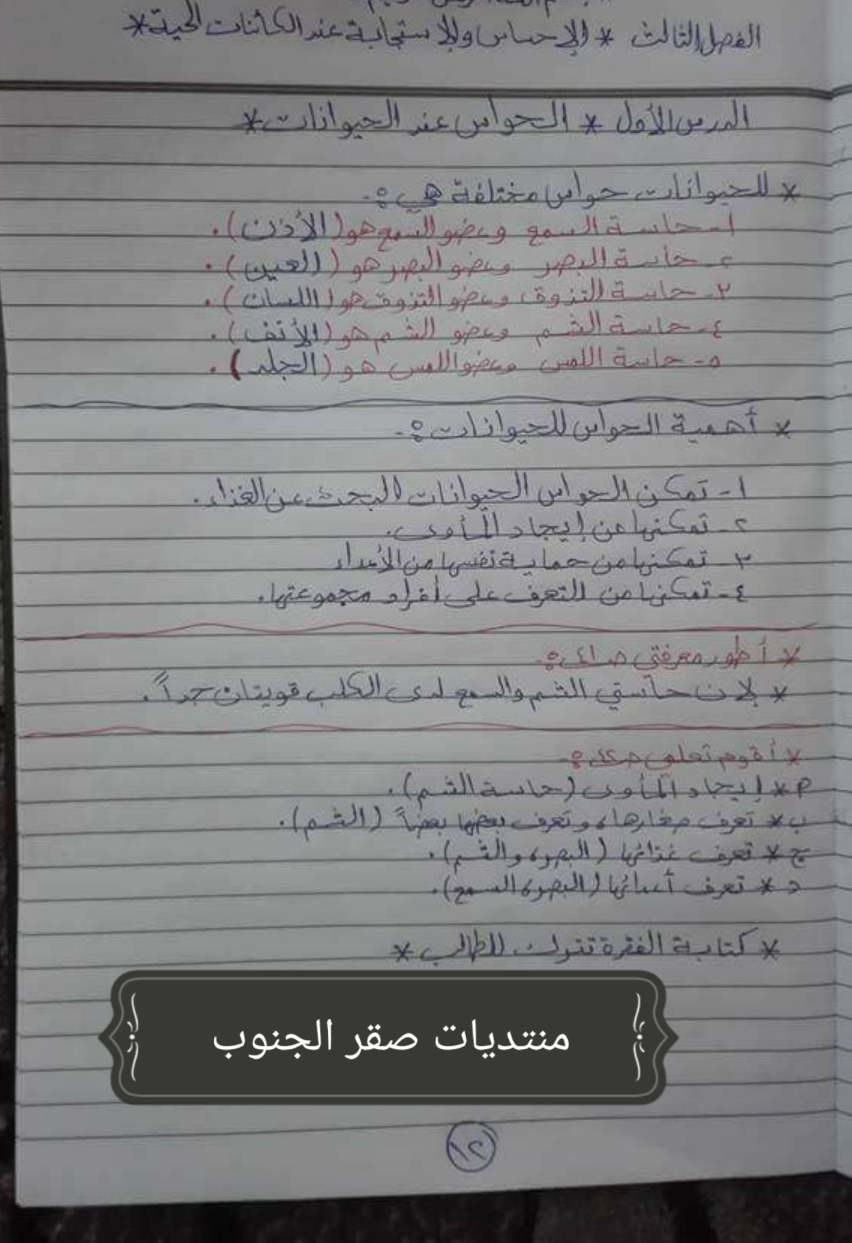 الفصل الثالث * الإحساس والإستجابة عند الكائنات الحية *
الدرس الأول * الحواس عند الحيوانات *
* للحيوانات حواس مختلفة هي :-
١- حاسة السمع وعضو السمع هو (الأذن).
٢- حاسة البصر وعضو البصر هو (العين).
٣- حاسة التذوق وعضو التذوق هو (اللسان).
٤- حاسة الشم وعضو الشم هو (الأنف).
٥- حاسة اللمس وعضو اللمس هو (الجلد).
* أهمية الحواس للحيوانات :-
١- تمكن الحواس الحيوانات البحث عن الغذاء.
٢- تمكنها من إيجاد المأوى.
٣- تمكنها من حماية نفسها من الأعداء
٤- تمكنها من التعرف على أفراد مجموعتها.
* أطور معرفتي :-
* لإن حاستي الشم والسمع لدى الكلب قويتان جداً.
* أقوم تعلمي :-
أ * إيجاد المأوى (حاسة الشم).
ب * تعرف صغارها، وتعرف بعضها بعضاً (الشم).
ج * تعرف غذائها (البصر، والشم).
د * تعرف أعدائها (البصر، السمع).
* كتابة الفقرة تترك للطالب *
منتديات صقر الجنوب
١٢